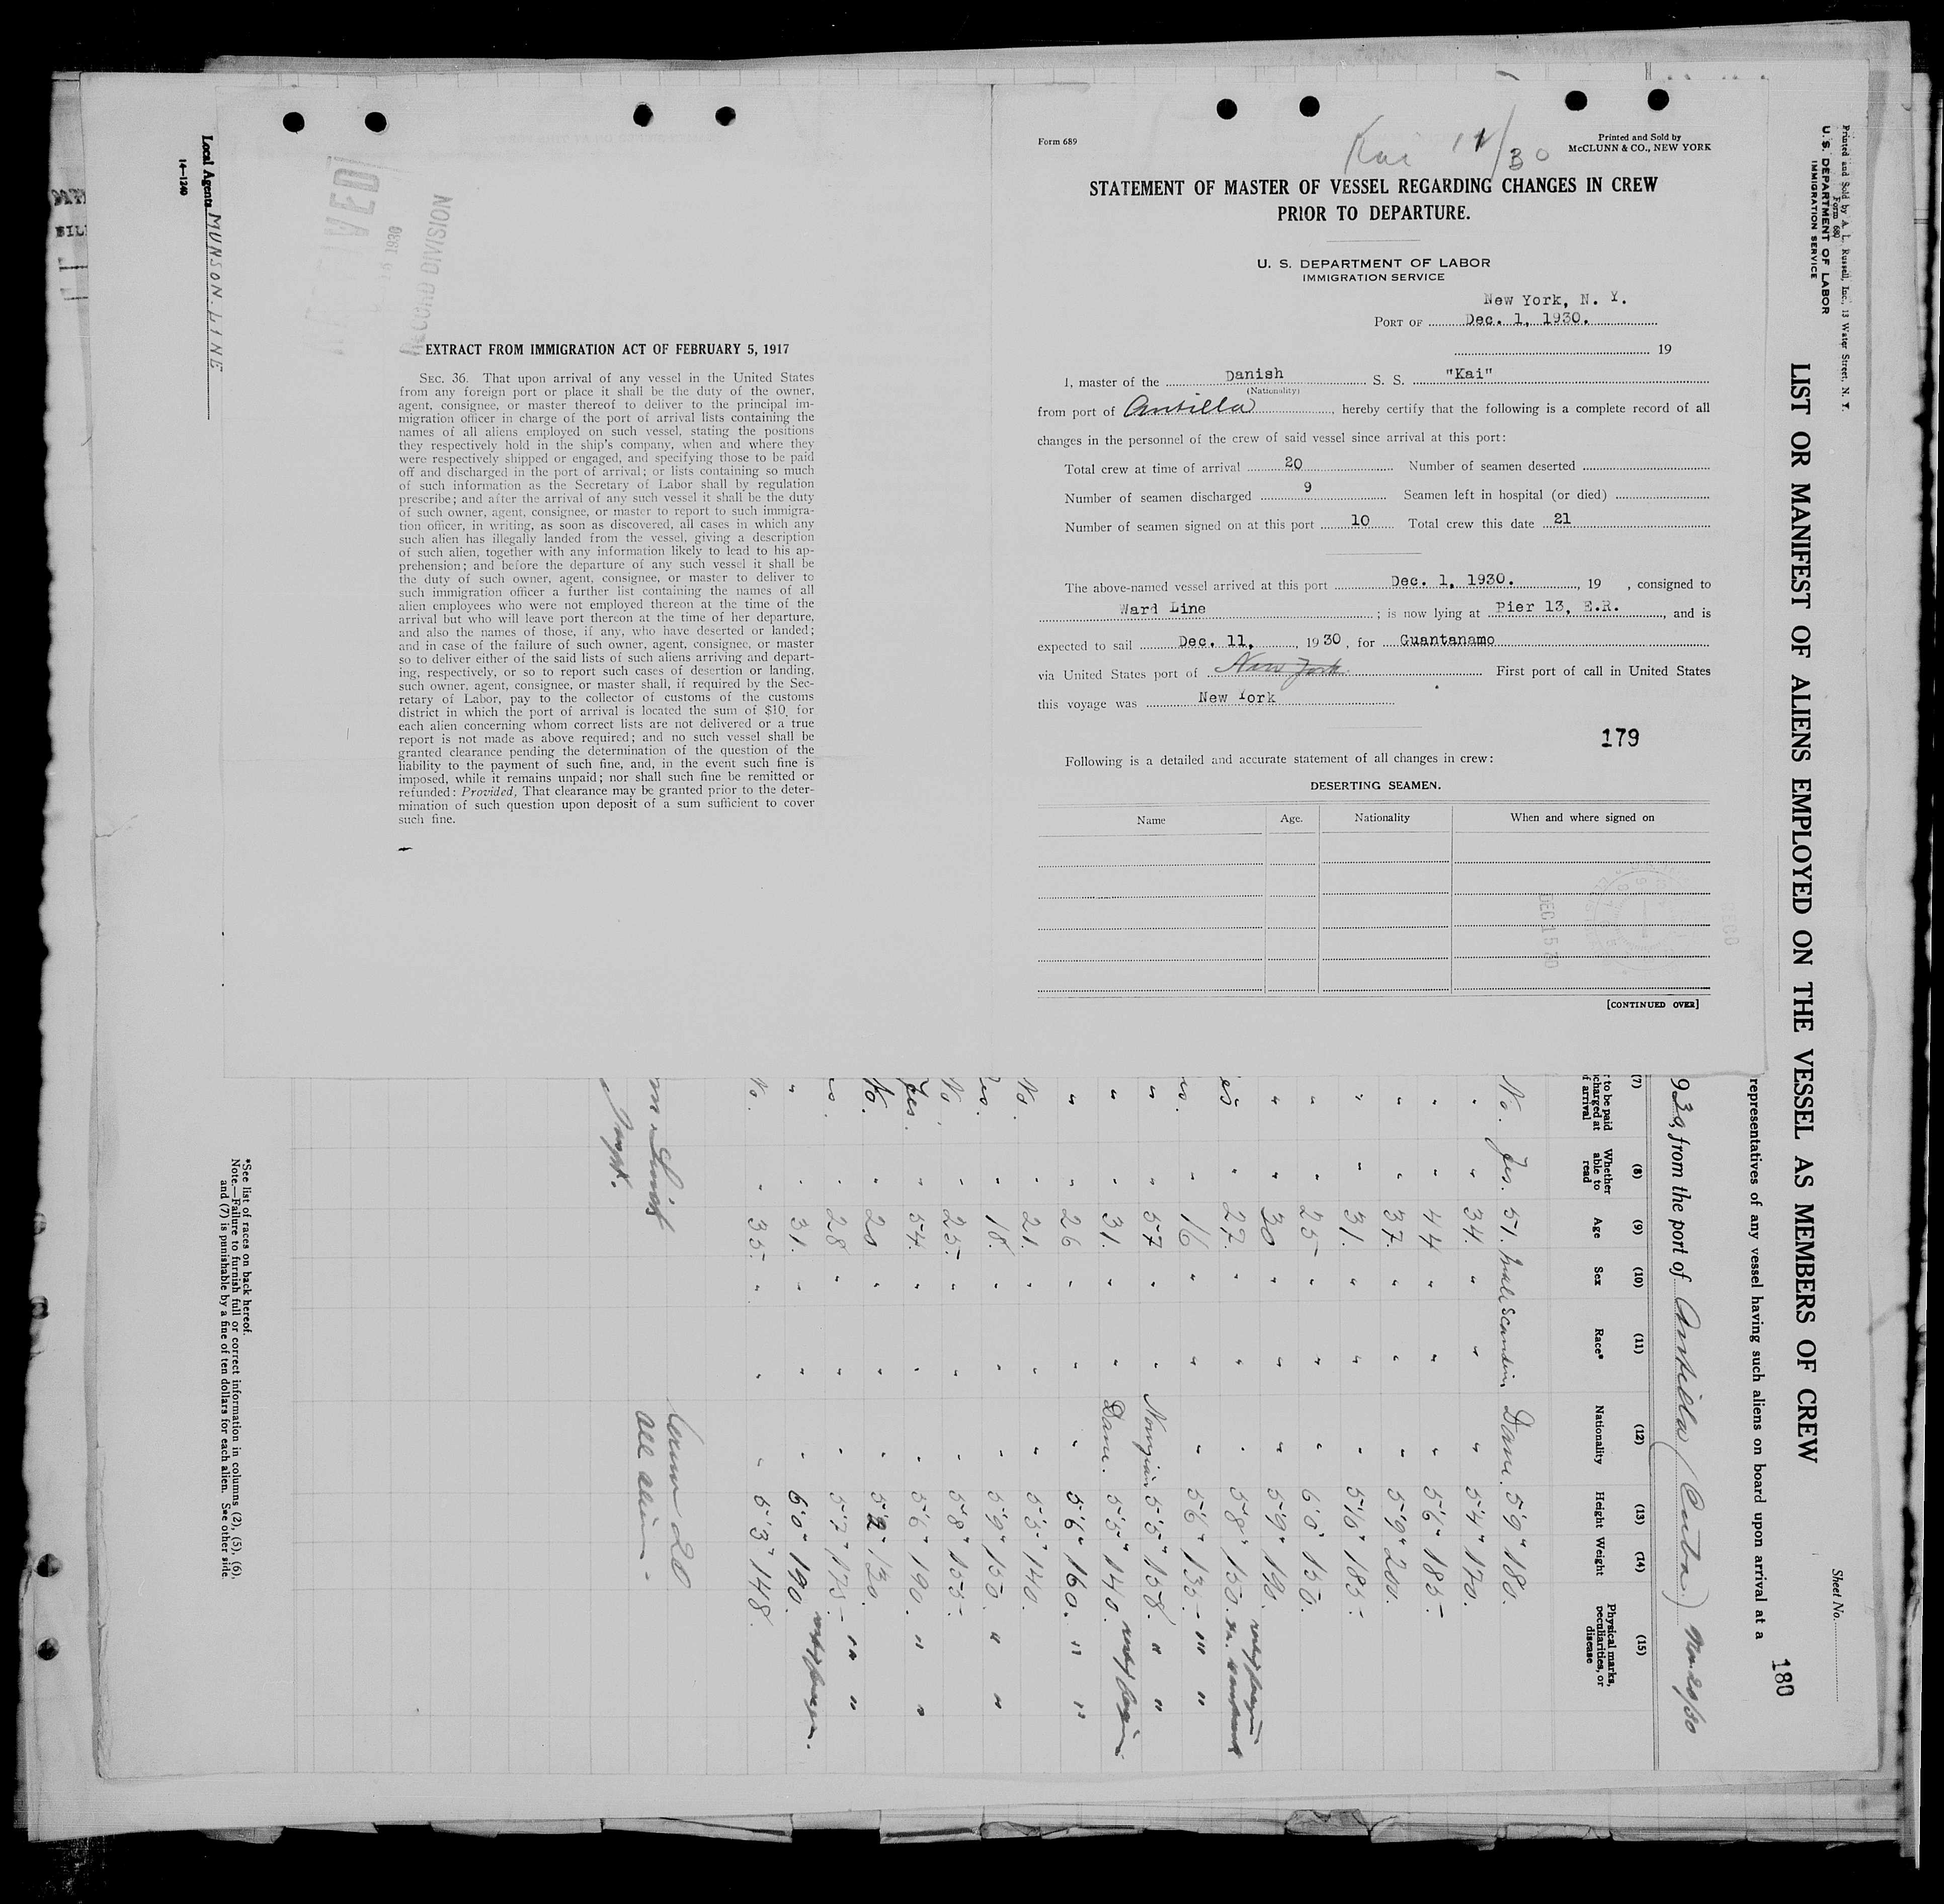 Form 689
Kai 11/30
Printed and Sold by
McCLUNN & CO., NEW YORK
STATEMENT OF MASTER OF VESSEL REGARDING CHANGES IN CREW
PRIOR TO DEPARTURE.
U. S. DEPARTMENT OF LABOR
IMMIGRATION SERVICE
New York, N. Y.
PORT OF Dec. 1, 1930.
19
I, master of the Danish S. S. "Kai"
(Nationality)
from port of Antilla, hereby certify that the following is a complete record of all
changes in the personnel of the crew of said vessel since arrival at this port:
Total crew at time of arrival 20 Number of seamen deserted
Number of seamen discharged 9 Seamen left in hospital (or died)
Number of seamen signed on at this port 10 Total crew this date 21
The above-named vessel arrived at this port Dec. 1, 1930., 19 , consigned to
Ward Line ; is now lying at Pier 13, E.R., and is
expected to sail Dec. 11, 1930, for Guantanamo
via United States port of New York First port of call in United States
this voyage was New York
179
Following is a detailed and accurate statement of all changes in crew:
DESERTING SEAMEN.
Name Age. Nationality When and where signed on
DEC 15 30
[CONTINUED OVER]
1930
RECORD DIVISION
EXTRACT FROM IMMIGRATION ACT OF FEBRUARY 5, 1917
SEC. 36. That upon arrival of any vessel in the United States
from any foreign port or place it shall be the duty of the owner,
agent, consignee, or master thereof to deliver to the principal im-
migration officer in charge of the port of arrival lists containing the
names of all aliens employed on such vessel, stating the positions
they respectively hold in the ship's company, when and where they
were respectively shipped or engaged, and specifying those to be paid
off and discharged in the port of arrival; or lists containing so much
of such information as the Secretary of Labor shall by regulation
prescribe; and after the arrival of any such vessel it shall be the duty
of such owner, agent, consignee, or master to report to such immigra-
tion officer, in writing, as soon as discovered, all cases in which any
such alien has illegally landed from the vessel, giving a description
of such alien, together with any information likely to lead to his ap-
prehension; and before the departure of any such vessel it shall be
the duty of such owner, agent, consignee, or master to deliver to
such immigration officer a further list containing the names of all
alien employees who were not employed thereon at the time of the
arrival but who will leave port thereon at the time of her departure,
and also the names of those, if any, who have deserted or landed;
and in case of the failure of such owner, agent, consignee, or master
so to deliver either of the said lists of such aliens arriving and depart-
ing, respectively, or so to report such cases of desertion or landing,
such owner, agent, consignee, or master shall, if required by the Sec-
retary of Labor, pay to the collector of customs of the customs
district in which the port of arrival is located the sum of $10 for
each alien concerning whom correct lists are not delivered or a true
report is not made as above required; and no such vessel shall be
granted clearance pending the determination of the question of the
liability to the payment of such fine, and, in the event such fine is
imposed, while it remains unpaid; nor shall such fine be remitted or
refunded: Provided, That clearance may be granted prior to the deter-
mination of such question upon deposit of a sum sufficient to cover
such fine.
Printed and Sold by A. L. Russell, Inc., 13 Water Street, N. Y.
Form 680
U. S. DEPARTMENT OF LABOR
IMMIGRATION SERVICE
Sheet No.
LIST OR MANIFEST OF ALIENS EMPLOYED ON THE VESSEL AS MEMBERS OF CREW
180
representatives of any vessel having such aliens on board upon arrival at a
930, from the port of Antilla (Cuba) Nov 20/30
(7) (8) (9) (10) (11) (12) (13) (14) (15)
to be paid
charged at
f arrival
Whether
able to
read
Age
Sex
Race*
Nationality
Height
Weight
Physical marks,
peculiarities, or
disease
No. Yes. 51. male Scandin. Dane. 5'9" 180.
" " 34. " " " 5'4" 170.
" " 44 " " " 5'6" 185.
" " 37. " " " 5'9" 200.
" " 31. " " " 5'10" 185.
" " 25 " " " 6'0" 150.
" " 30 " " " 5'9" 190.
es " 27. " " " 5'8" 150.
es. " 16 " " " 5'6" 135. " "
" " 57 " " Norwegian 5'5" 158. " "
" " 31. " " Dane. 5'5" 140.
" " 26 " " " 5'6" 160. " "
No. " 21. " " " 5'5" 140.
es. " 18. " " " 5'9" 150. " "
No " 25. " " " 5'8" 155.
Yes. " 54. " " " 5'6" 190. " "
No. " 20 " " " 5'9" 130.
es. " 28 " " " 5'7" 175. " "
" " 31. " " " 6'0" 190.
No. " 35. " " " 5'3" 148.
20
all aliens
Local Agents MUNSON LINE
14-1240
*See list of races on back hereof.
Note.—Failure to furnish full or correct information in columns (2), (5), (6),
and (7) is punishable by a fine of ten dollars for each alien. See other side.